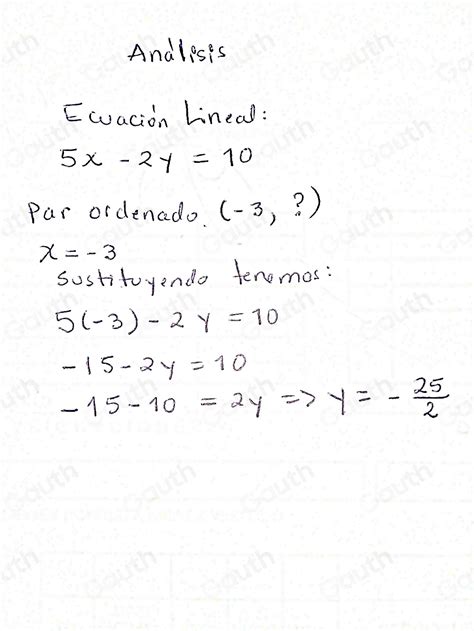 Análisis
Ecuación Lineal:
5x - 2y = 10
Par ordenado. (-3, ?)
x = -3
Sustituyendo tenemos:
5(-3) - 2y = 10
-15 - 2y = 10
-15 - 10 = 2y => y = - 25/2